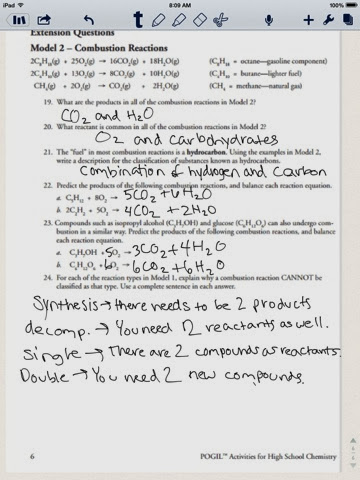 iPad
8:09 AM
89%
Extension Questions
Model 2 – Combustion Reactions
2C₈H₁₈(g) + 25O₂(g) → 16CO₂(g) + 18H₂O(g) (C₈H₁₈ = octane—gasoline component)
2C₄H₁₀(g) + 13O₂(g) → 8CO₂(g) + 10H₂O(g) (C₄H₁₀ = butane—lighter fuel)
CH₄(g) + 2O₂(g) → CO₂(g) + 2H₂O(g) (CH₄ = methane—natural gas)
19. What are the products in all of the combustion reactions in Model 2?
CO₂ and H₂O
20. What reactant is common in all of the combustion reactions in Model 2?
O₂ and carbohydrates
21. The "fuel" in most combustion reactions is a hydrocarbon. Using the examples in Model 2,
write a description for the classification of substances known as hydrocarbons.
Combination of hydrogen and carbon
22. Predict the products of the following combustion reactions, and balance each reaction equation.
a. C₅H₁₂ + 8O₂ → 5CO₂ + 6H₂O
b. 2C₂H₂ + 5O₂ → 4CO₂ + 2H₂O
23. Compounds such as isopropyl alcohol (C₃H₇OH) and glucose (C₆H₁₂O₆) can also undergo com-
bustion in a similar way. Predict the products of the following combustion reactions, and balance
each reaction equation.
a. C₃H₇OH + 5O₂ → 3CO₂ + 4H₂O
b. C₆H₁₂O₆ + 6O₂ → 6CO₂ + 6H₂O
24. For each of the reaction types in Model 1, explain why a combustion reaction CANNOT be
classified as that type. Use a complete sentence in each answer.
Synthesis → there needs to be 2 products
decomp. → You need 2 reactants as well.
Single → There are 2 compounds as reactants.
Double → You need 2 new compounds.
6
POGIL™ Activities for High School Chemistry